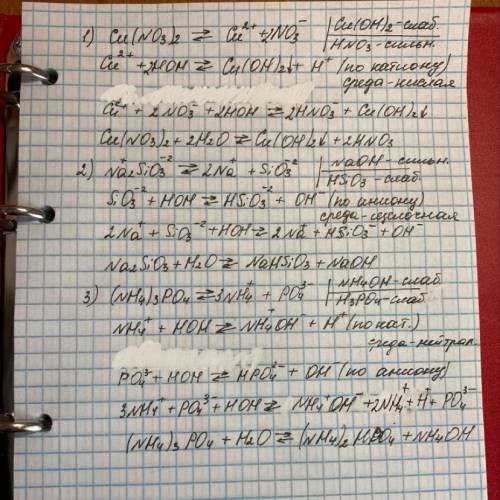 1) Cu(NO₃)₂ ⇄ Cu²⁺ + 2NO₃⁻ | Cu(OH)₂ - слаб.
HNO₃ - сильн.
Cu²⁺ + 2HOH ⇄ Cu(OH)₂↓ + H⁺ (по катиону)
среда - кислая
Cu²⁺ + 2NO₃⁻ + 2HOH ⇄ 2HNO₃⁻ + Cu(OH)₂↓
Cu(NO₃)₂ + 2H₂O ⇄ Cu(OH)₂↓ + 2HNO₃
2) Na₂⁺SiO₃⁻² ⇄ 2Na⁺ + SiO₃⁻² | NaOH - сильн.
HSiO₃ - слаб.
SiO₃⁻² + HOH ⇄ HSiO₃⁻² + OH⁻ (по аниону)
среда - щелочная
2Na⁺ + SiO₃⁻² + HOH ⇄ 2Na⁺ + HSiO₃⁻ + OH⁻
Na₂SiO₃ + H₂O ⇄ NaHSiO₃ + NaOH
3) (NH₄)₃PO₄ ⇄ 3NH₄⁺ + PO₄³⁻ | NH₄OH - слаб
H₃PO₄ - слаб.
NH₄⁺ + HOH ⇄ NH₄⁺OH⁻ + H⁺ (по кат.)
среда - нейтрал.
PO₄³⁻ + HOH ⇄ HPO₄²⁻ + OH⁻ (по аниону)
3NH₄⁺ + PO₄³⁻ + HOH ⇄ NH₄⁺OH⁻ + 2NH₄⁺ + H⁺ + PO₄³⁻
(NH₄)₃PO₄ + H₂O ⇄ (NH₄)₂HPO₄ + NH₄OH